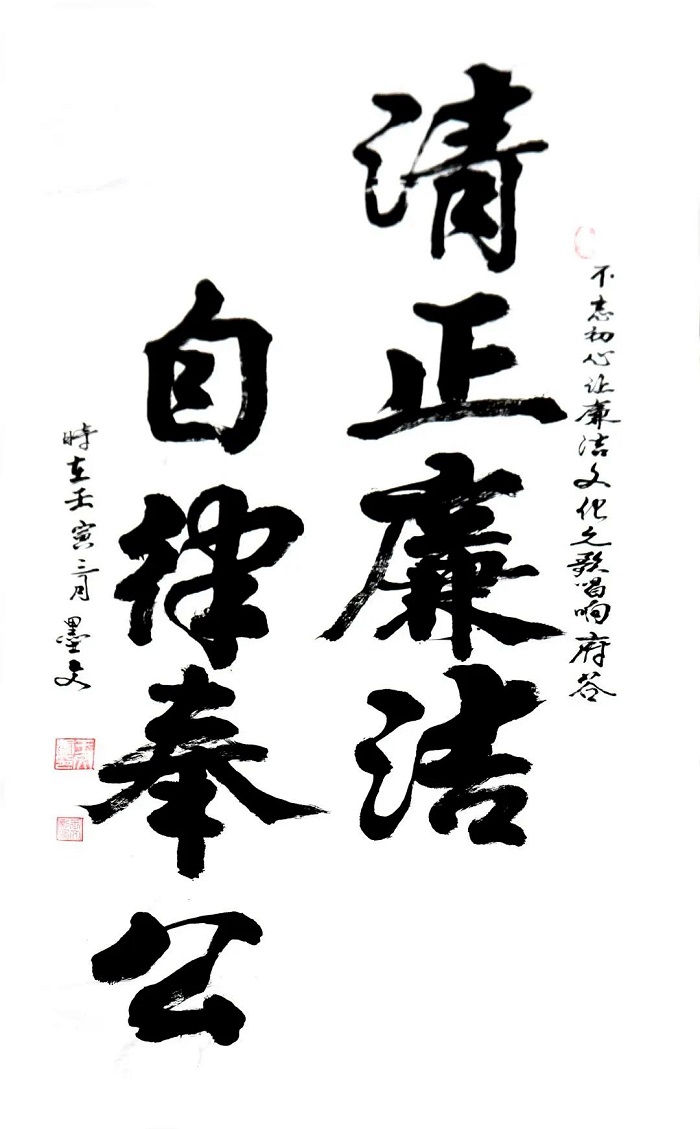 不忘初心让廉洁文化之歌唱响府谷
清正廉洁
自律奉公
时在壬寅三月 墨文